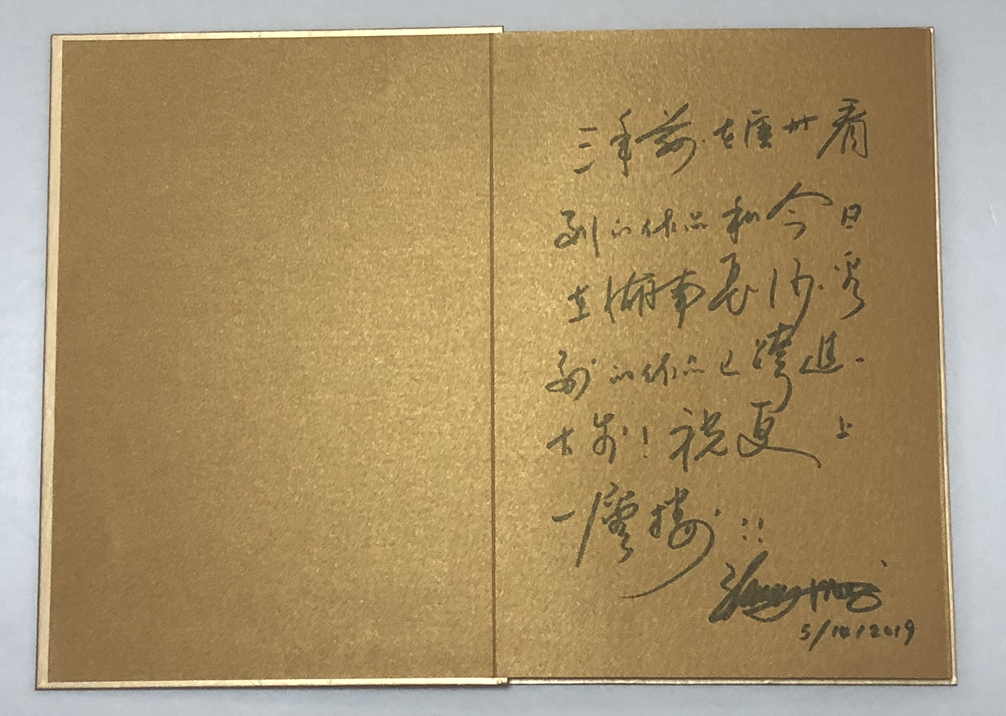 三年前在廣州看
到的作品和今日
在湖南長沙看
到的作品已跨進一
大步！祝更上
一層樓！！
5/10/2019